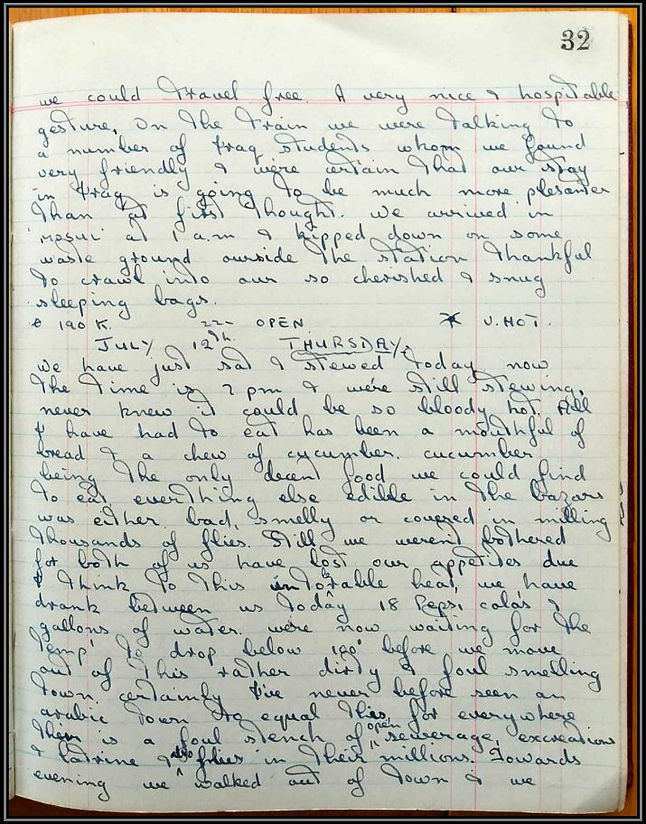 32
we could travel free. A very nice & hospitable
gesture. On the train we were talking to
a number of Iraq students whom we found
very friendly & were certain that our stay
in Iraq is going to be much more plesanter
than at first thought. We arrived in
'mosul' at 1 a.m & kipped down on some
waste ground ourside the station thankful
to crawl into our so cherished & snug
sleeping bags.
190 K. OPEN V. HOT.
JULY 12th. THURSDAY.
we have just sat & stewed today now
the time is 2 pm & we're still stewing,
never knew it could be so bloody hot. All
I have had to eat has been a mouthful of
bread & a chew of cucumber. cucumber
being the only decent food we could find
to eat everything else edible in the bazars
was either bad, smelly or covered in milling
thousands of flies. Still we weren't bothered
for both of us have lost our appetites due
I think to this intolrable heat, we have
drank between us today 18 Pepsi cola's &
gallons of water. we're now waiting for the
temp' to drop below 100° before we move
out of this rather dirty & foul smelling
town. certainly I've never before seen an
arabic town to equal this, for everywhere
there is a foul stench of open sewerage, excreation
& latrine & also flies in their millions. Towards
evening we walked out of town & we